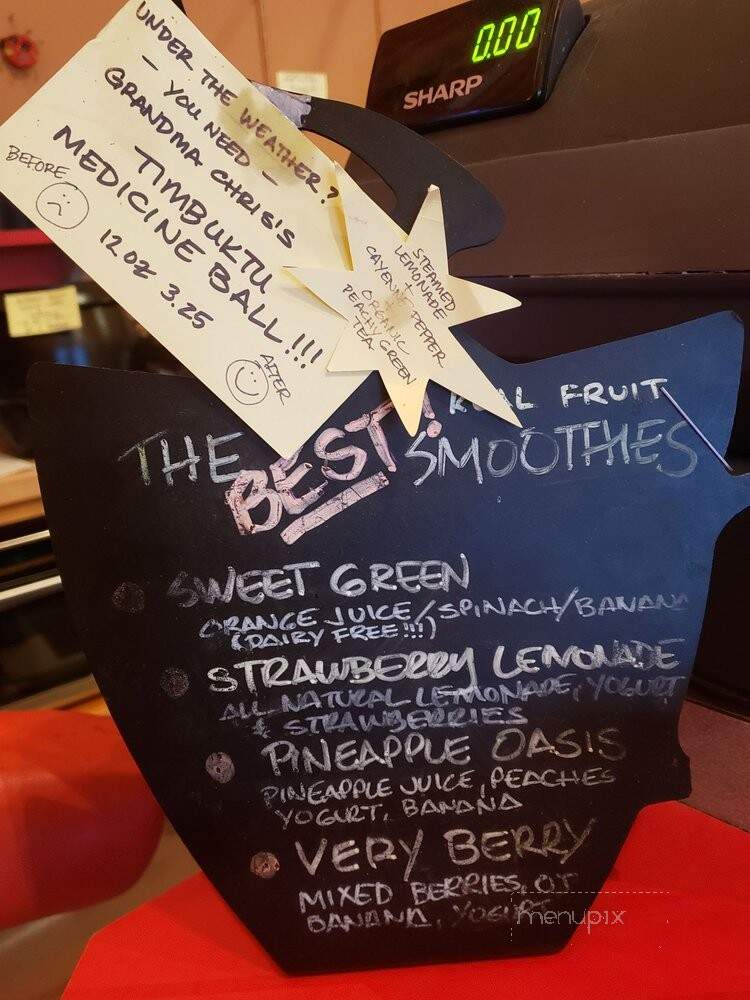 UNDER THE WEATHER?
- YOU NEED -
GRANDMA CHRIS'S
TIMBUKTU
MEDICINE BALL!!!
12 OZ 3.25
BEFORE
AFTER
STEAMED
LEMONADE
+
CAYENNE PEPPER
+
ORGANIC
PEACHY GREEN
TEA
0.00
SHARP
REAL FRUIT
THE BEST! SMOOTHIES
SWEET GREEN
ORANGE JUICE/SPINACH/BANANA
(DAIRY FREE!!!)
STRAWBERRY LEMONADE
ALL NATURAL LEMONADE, YOGURT
& STRAWBERRIES
PINEAPPLE OASIS
PINEAPPLE JUICE, PEACHES
YOGURT, BANANA
VERY BERRY
MIXED BERRIES, OJ
BANANA, YOGURT
menupix